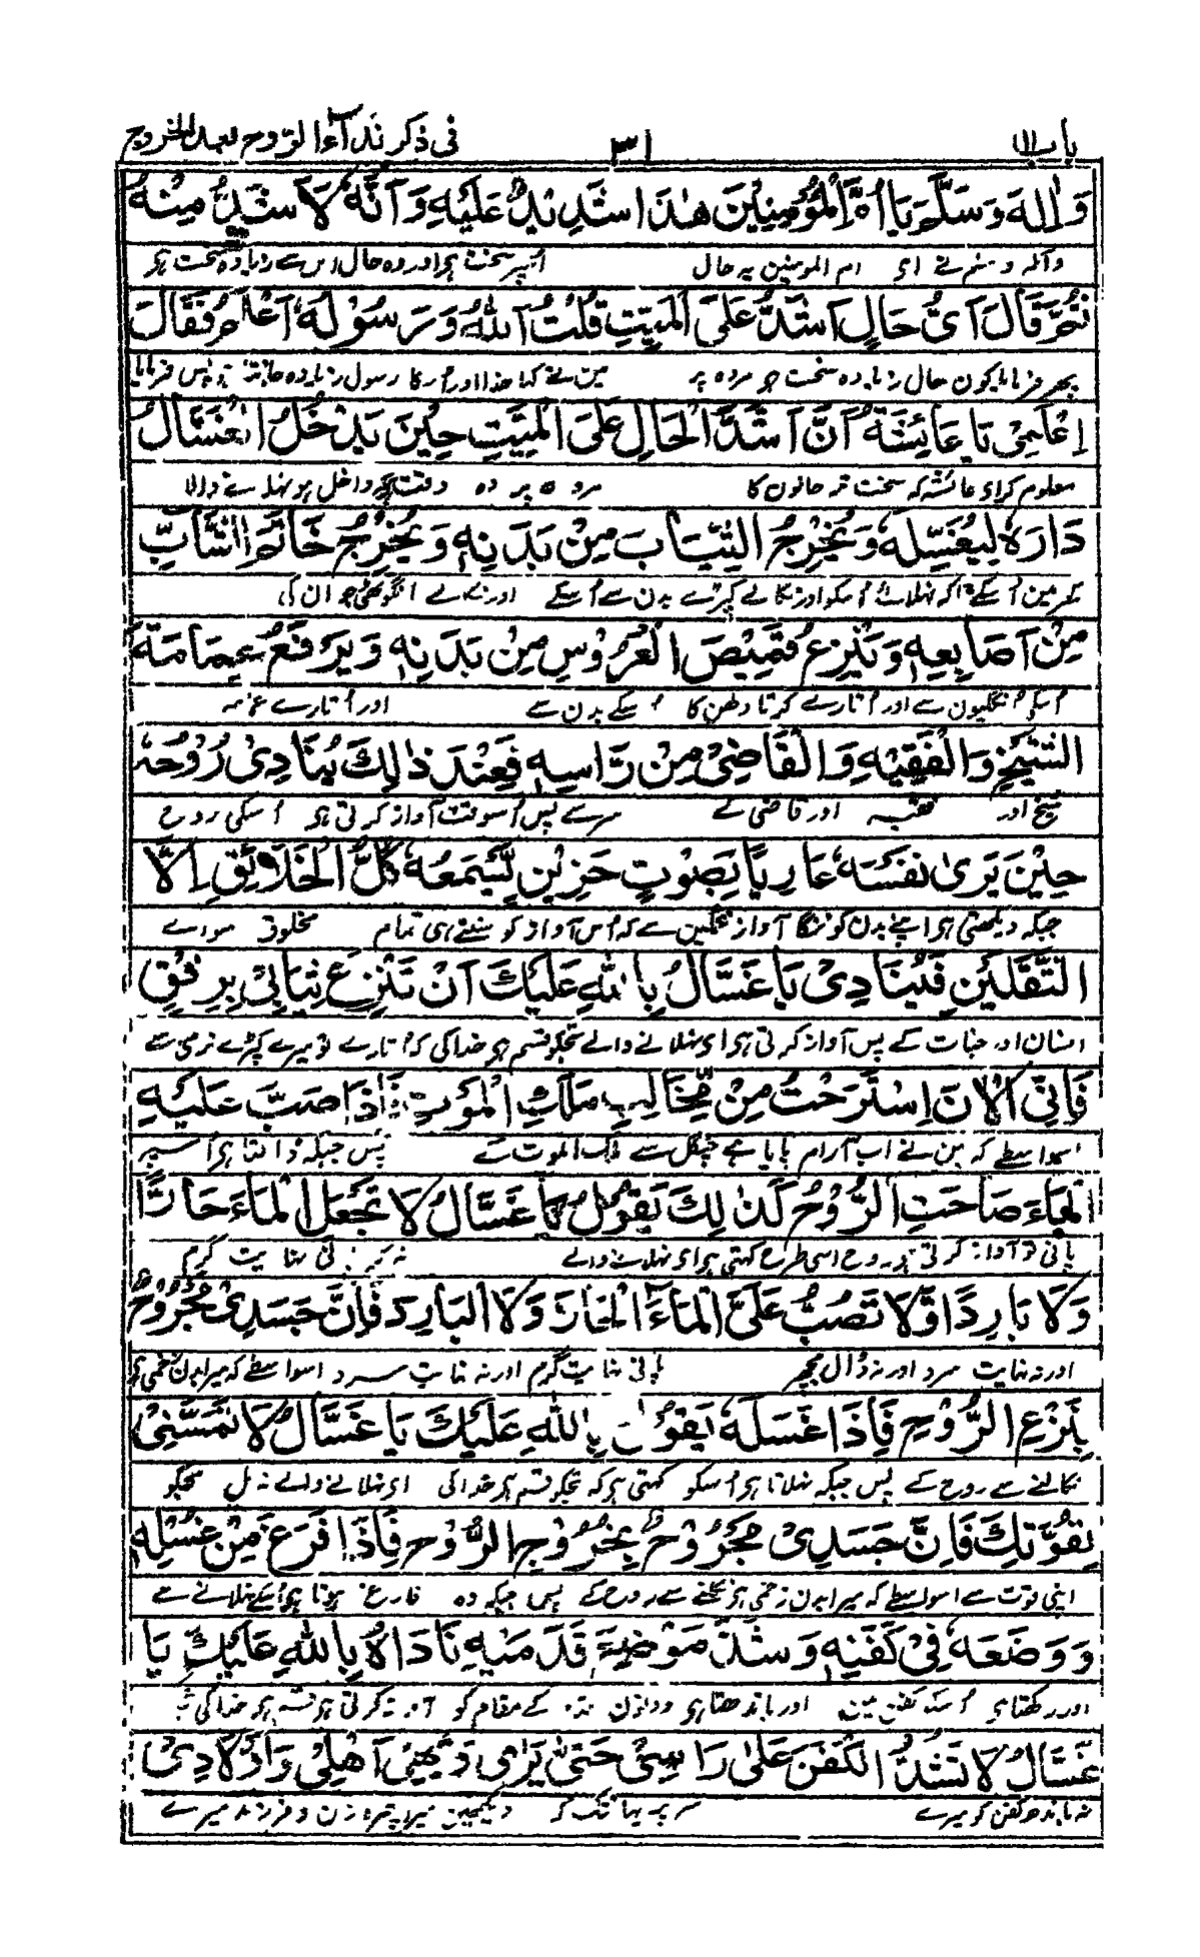 باب ۱۱ ۳۱ فی ذکر ندآء الروح بعد الخروج
وَاٰلِهٖ وَسَلَّمَ يَا اُمَّ الْمُؤْمِنِيْنَ هٰذَا شَدِيْدٌ عَلَيْهِ وَاَنَّهٗ لَاَشَدُّ مِنْهُ
وآلہ وسلم نے ای ام المومنین یہ حال اسپر سخت ہی اور وہ حال اس سے زیادہ سخت ہی
ثُمَّ قَالَ اَيُّ حَالٍ اَشَدُّ عَلَى الْمَيِّتِ قُلْتُ اَللّٰهُ وَرَسُوْلُهٗ اَعْلَمُ فَقَالَ
پھر فرمایا کون حال زیادہ سخت ہو مردہ پر مین نے کہا خدا اور اُسکا رسول زیادہ جانتا ہی پس فرمایا
اِعْلَمِيْ يَا عَائِشَةُ اَنَّ اَشَدَّ الْحَالِ عَلَى الْمَيِّتِ حِيْنَ يَدْخُلُ الْغَسَّالُ
معلوم کر ای عائشہ کہ سخت تر حالون کا مردہ پر وہ وقت ہی کہ داخل ہو نہلانے والا
دَارَهٗ لِيُغَسِّلَهٗ وَيُخْرِجُ الثِّيَابَ مِنْ بَدَنِهٖ وَيُخْرِجُ خَاتَمَ الشَّابِّ
گھر مین اُسکے تاکہ نہلائے اُسکو اور نکالے کپڑے بدن سے اُسکے اور نکالے انگوٹھی جوان کی
مِنْ اَصَابِعِهٖ وَيَنْزِعُ قَمِيْصَ الْعَرُوْسِ مِنْ بَدَنِهٖ وَيَرْفَعُ عِمَامَةَ
اُسکی اُنگلیون سے اور اُتارے کرتا دلھن کا اُسکے بدن سے اور اُتارے عمامہ
الشَّيْخِ وَالْفَقِيْهِ وَالْقَاضِيْ مِنْ رَّاسِهٖ فَعِنْدَ ذٰلِكَ يُنَادِيْ رُوْحُهٗ
شیخ اور فقیہ اور قاضی کے سر سے پس اُسوقت آواز کرتی ہی اُسکی روح
حِيْنَ يَرٰى نَفْسَهٗ عَارِيًا بِصَوْتٍ حَزِيْنٍ لِّيَسْمَعَهٗ كُلُّ الْخَلَآئِقِ اِلَّا
جبکہ دیکھتی ہی اپنے بدن کو ننگا آواز غمگین سے کہ اُس آواز کو سنتے ہی تمام مخلوق سواے
الثَّقَلَيْنِ فَيُنَادِيْ يَا غَسَّالُ بِاللّٰهِ عَلَيْكَ اَنْ تَنْزِعَ ثِيَابِيْ بِرِفْقٍ
انسان اور جنات کے پس آواز کرتی ہی ای نہلانے والے تجکو قسم ہی خدا کی کہ اُتارے تو میرے کپڑے نرمی سے
فَاِنِّي الْاٰنَ اِسْتَرَحْتُ مِنْ مِّخَالِبِ مَلَكِ الْمَوْتِ فَاِذَا صَبَّ عَلَيْهِ
اسواسطے کہ مین نے اب آرام پایا ہے چنگل سے ملک الموت کے پس جبکہ ڈالتا ہی اُسپر
الْمَاءَ صَاحَتِ الرُّوْحُ كَذٰلِكَ يَقُوْلُ يَا غَسَّالُ لَا تَجْعَلِ الْمَاءَ حَارًّا
پانی تو آواز کرتی ہی روح اسی طرح کہتی ہی ای نہلانے والے نہ کر پانی نہایت گرم
وَلَا بَارِدًا وَّلَا تَصُبُّ عَلَيَّ الْمَآءَ الْحَارَّ وَلَا الْبَارِدَ فَاِنَّ جَسَدِيْ مَجْرُوْحٌ
اور نہ نہایت سرد اور نہ ڈال مجھپر پانی نہایت گرم اور نہ نہایت سرد اسواسطے کہ میرا بدن زخمی ہی
بِنَزْعِ الرُّوْحِ فَاِذَا غَسَلَهٗ يَقُوْلُ بِاللّٰهِ عَلَيْكَ يَا غَسَّالُ لَا تَمَسَّنِيْ
نکالنے سے روح کے پس جبکہ نہلاتا ہی اُسکو کہتی ہی کہ تجکو قسم ہی خدا کی ای نہلانے والے نہ مل مجکو
بِقُوَّتِكَ فَاِنَّ جَسَدِيْ مَجْرُوْحٌ بِخُرُوْجِ الرُّوْحِ فَاِذَا فَرَغَ مِنْ غُسْلِهٖ
اپنی قوت سے اسواسطے کہ میرا بدن زخمی ہی نکلنے سے روح کے پس جبکہ وہ فارغ ہوتا ہی اُسکے نہلانے سے
وَوَضَعَهٗ فِيْ كَفَنِهٖ وَشَدَّ مَوْضِعَ قَدَمَيْهِ نَادَاهُ بِاللّٰهِ عَلَيْكَ يَا
اور رکھتا ہی اُسکو کفن مین اور باندھتا ہی دونون قدم کے مقام کو آواز کرتی ہی قسم ہی خدا کی
غَسَّالُ لَا تَشُدَّ الْكَفَنَ عَلٰى رَاسِيْ حَتّٰى يَرٰى وَجْهِيْ اَهْلِيْ وَاَوْلَادِيْ
نہ باندھ کفن کو میرے سر پر یہانتک کہ دیکھین میرا چہرہ زن و فرزند میرے